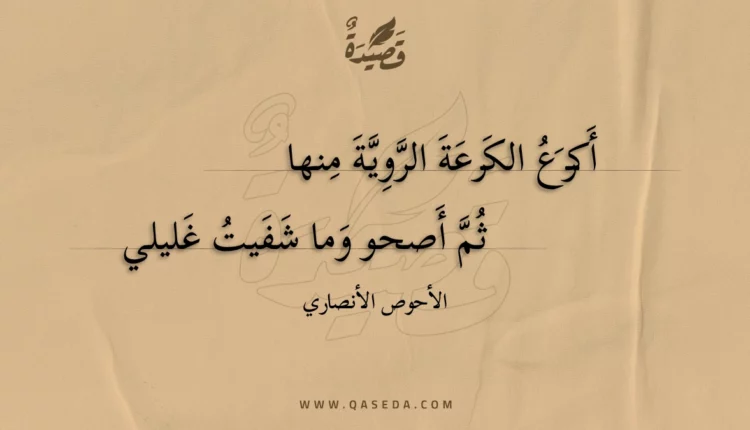 قَصِيْدَةٌ
أَكرَعُ الكَرعَةَ الرَّوِيَّةَ مِنها
ثُمَّ أَصحو وَما شَفَيتُ غَليلي
الأحوص الأنصاري
WWW.QASEDA.COM